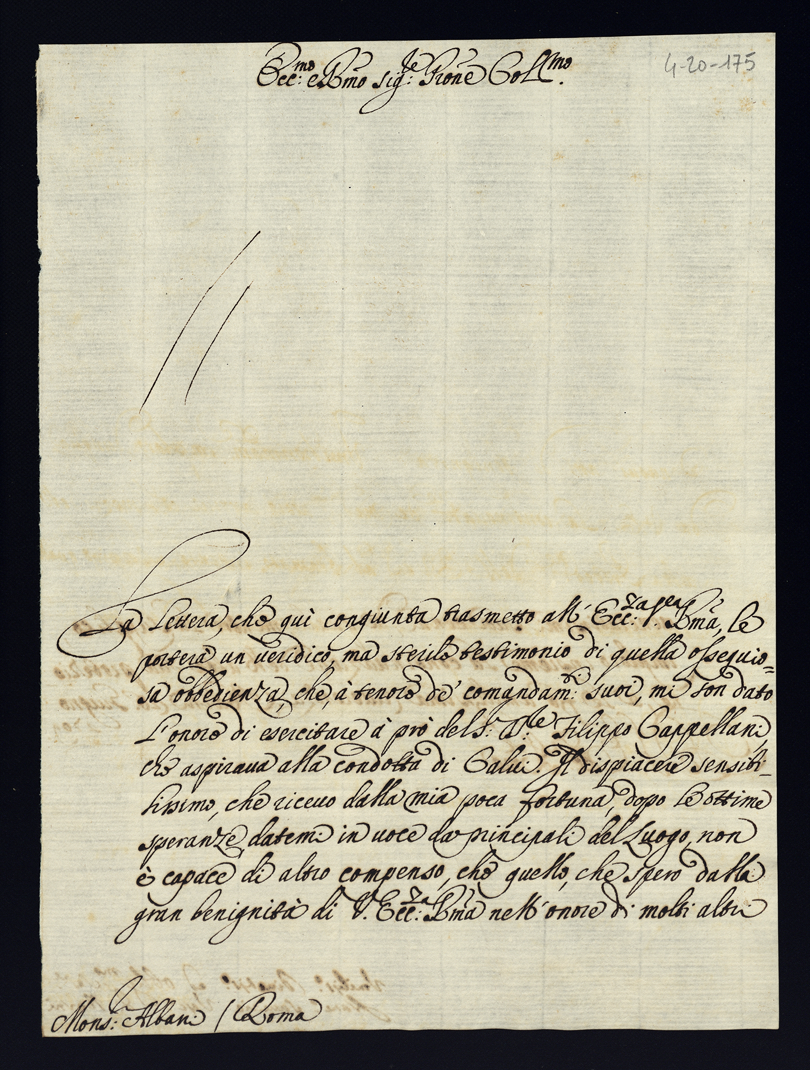 4-20-175
Ecc:mo e Rmo Sig:re Prone Coll.mo
La Lettera, che qui congiunta trasmetto all' Ecc:za V.ra Rma, le
porterà un veridico, ma sterile testimonio di quella ossequio=
sa obbedienza, che, à tenore de' comandam:ti suoi, mi son dato
l'onore di esercitare à prò del S:r D:re Filippo Cappellani,
che aspirava alla condotta di Calvi. Il dispiacere sensibi=
lissimo, che ricevo dalla mia poca fortuna, dopo le ottime
speranze datemi in voce da principali del Luogo, non
è capace di altro compenso, che quello, che spero dalla
gran benignità di V. Ecc:za Rma nell' onore di molti altri
Mons:r Albani / Roma